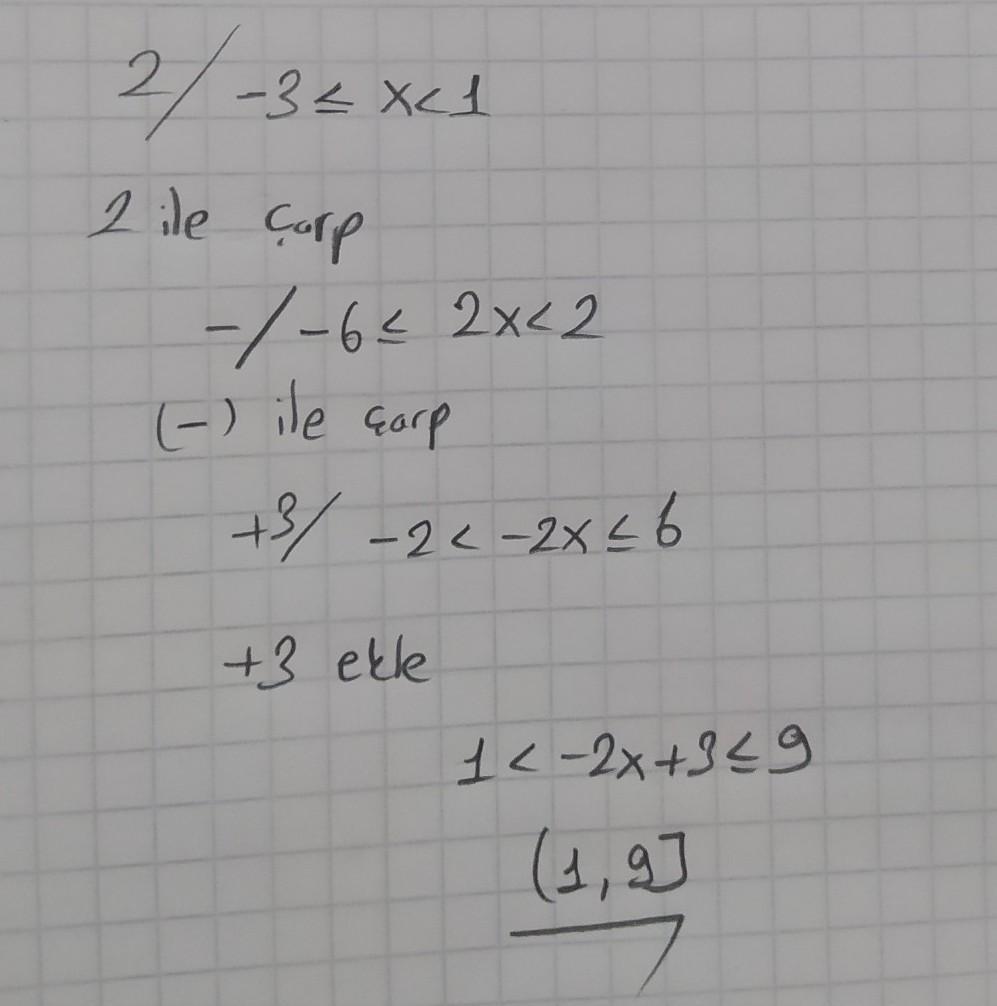 2/ -3 ≤ x < 1
2 ile çarp
-/ -6 ≤ 2x < 2
(-) ile çarp
+3/ -2 < -2x ≤ 6
+3 ekle
1 < -2x+3 ≤ 9
(1, 9]